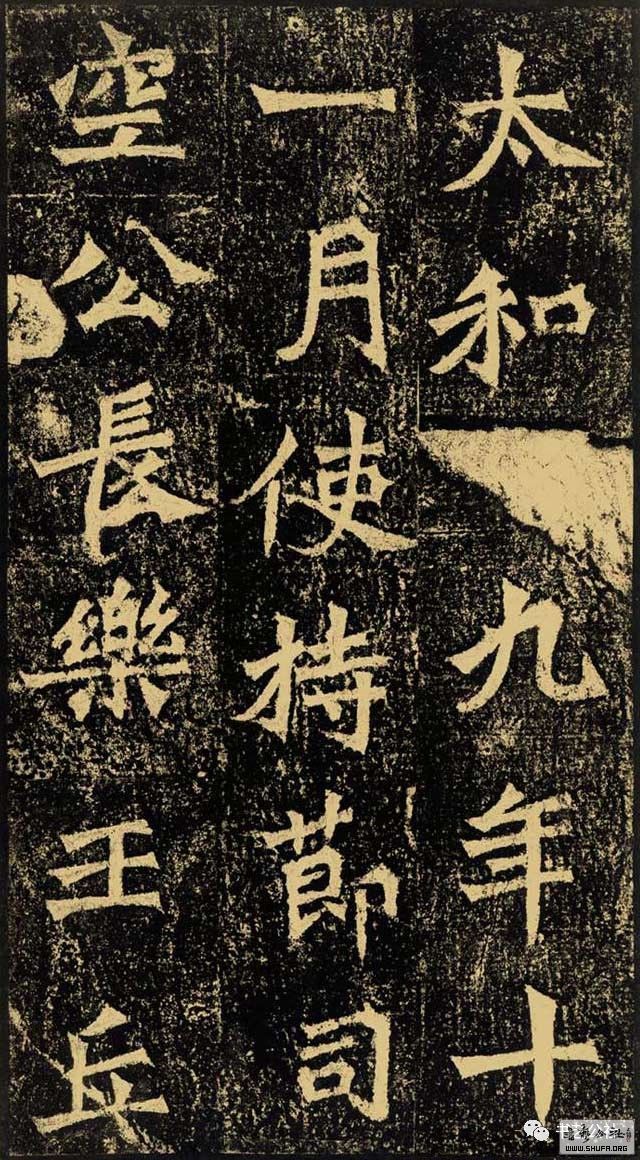 太和九年十
一月使持莭司
空公長樂王丘
书艺公社
WWW.SHUFA.ORG